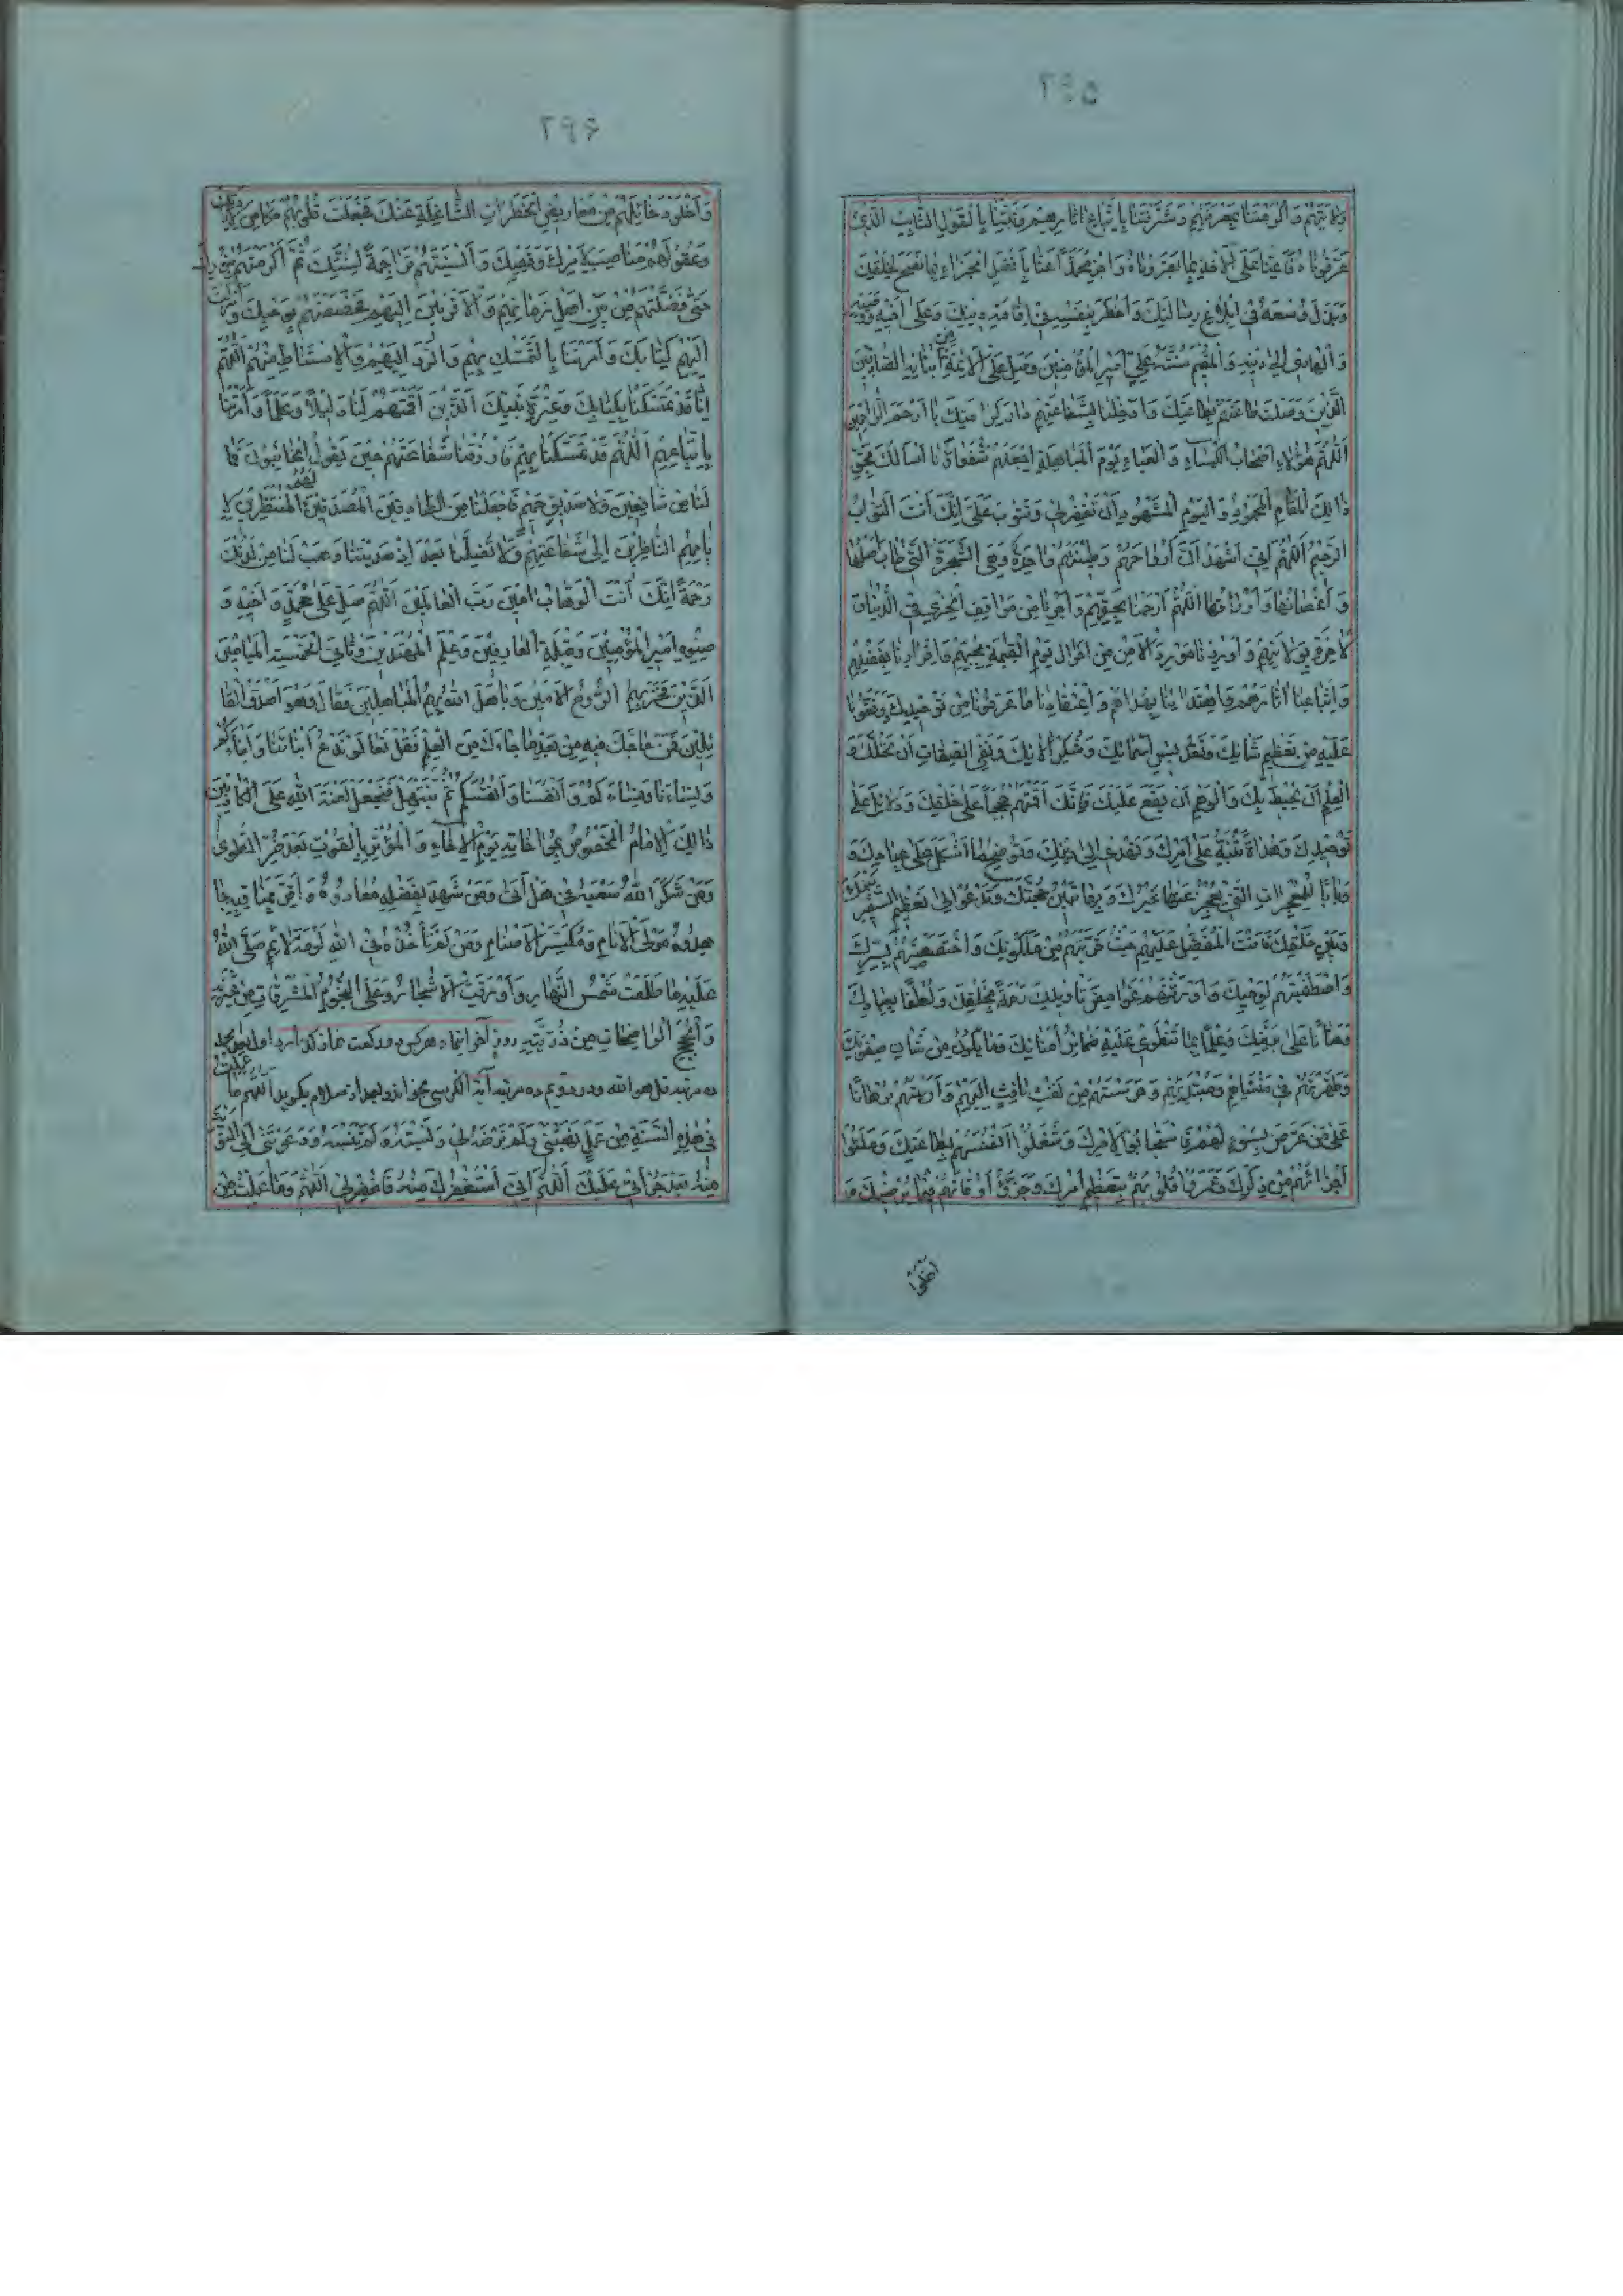 ۲۹۵
ولايتهم واكرمتنا بمعرفتهم وشرفتنا باتباع اثارهم وثبتنا بالقول الثابت الذي
عرفوناه فاعنا على الاخذ بما بصروناه واجز محمدا عنا بافضل الجزاء بما نصح لخلقك
وبذل وسعه في ابلاغ رسالتك واخطر بنفسه في اقامة دينك وعلى اخيه ووصيه
والهادي الى دينه والقيم بسنته علي امير المؤمنين وصل على الائمة من ابنائه الصادقين
الذين وصلت طاعتهم بطاعتك وادخلنا بشفاعتهم دار كرامتك يا ارحم الراحمين
اللهم هؤلاء اصحاب الكساء والعباء يوم المباهلة اجعلهم شفعاءنا اسالك بحق
ذالك المقام المحمود واليوم المشهود ان تغفر لي وتتوب علي انك انت التواب
الرحيم اللهم اني اشهد ان ارواحهم وطينتهم واحدة وهي الشجرة التي طاب اصلها
واغصانها واوراقها اللهم ارحمنا بحقهم واجرنا من مواقف الخزي في الدنيا و
الاخرة بولايتهم واوردنا مورد الامن من اهوال يوم القيمة بحبهم واقرارنا بفضلهم
واتباعنا اثارهم واهتدائنا بهداهم واعتقادنا ما عرفونا من توحيدك ووقفونا
عليه من تعظيم شانك وتقديس اسمائك وشكر الائك ونفي الصفات ان تحلك و
العلم ان يحيط بك والوهم ان يقع عليك فانك اقمتهم حججا على خلقك ودلائل على
توحيدك وهداة تنبه على امرك وتهدي الى دينك وتوضح ما اشكل على عبادك و
بابا للمعجزات التي يعجز عنها غيرك وبها تبين حجتك وتدعو الى تعظيم السفير
بينك
وبين خلقك وانت المتفضل عليهم حيث قربتهم من ملكوتك واختصصتهم بسرك
واصطفيتهم لوحيك واورثتهم غوامض تاويلك رحمة بخلقك ولطفا بعبادك
وحنانا على بريتك وعلما بما تنطوي عليه ضمائر امنائك وما يكون من شان صفوتك
وطهرتهم في منشاهم ومبتدئهم وحرستهم من نفث نافث اليهم واريتهم برهانا
على من عرض بسوء لهم فاستجابوا لامرك وشغلوا انفسهم بطاعتك وملئوا
اجزائهم من ذكرك وعمروا قلوبهم بتعظيم امرك وجزؤا اوقاتهم فيما يرضيك
اخلوا
۲۹۶
واخلو دخائلهم من معاريض الخطرات الشاغلة عنك فجعلت قلوبهم مكامن
وعقولهم مناصب لامرك ونهيك والسنتهم تراجمة لسنتك ثم اكرمتهم بنورك
حتى فضلتهم من بين اهل زمانهم والاقربين اليهم فخصصتهم بوحيك وانزلت
اليهم كتابك وامرتنا بالتمسك بهم والرد اليهم والاستنباط منهم اللهم
انا قد تمسكنا بكتابك وعترة نبيك الذين اقمتهم لنا دليلا وعلما وامرتنا
باتباعهم اللهم قد تمسكنا بهم فارزقنا شفاعتهم حين يقول الخائبون فما
لنا من شافعين ولا صديق حميم فاجعلنا من الصادقين المصدقين لهم المنتظرين لا
يامهم الناظرين الى شفاعتهم ولا تضلنا بعد اذ هديتنا وهب لنا من لدنك
رحمة انك انت الوهاب امين رب العالمين اللهم صل على محمد واخيه و
صنوه امير المؤمنين وقبلة العارفين وعلم المهتدين وثاني الخمسة الميامين
الذين فخر بهم الروح الامين وباهل الله بهم المباهلين فقال وهو اصدق القا
ئلين فمن حاجك فيه من بعد ما جاءك من العلم فقل تعالوا ندع ابنائنا وابناءكم
ونساءنا ونساءكم وانفسنا وانفسكم ثم نبتهل فنجعل لعنة الله على الكاذبين
ذالك الامام المخصوص بمواخاته يوم الاخاء والمؤثر بالقوت بعد ضر الطوى
ومن شكر الله سعيه في هل اتى ومن شهد بفضله معادوه واقر بمناقبه جا
حدوه مولى الانام ومكسر الاصنام ومن لم تاخذه في الله لومة لائم صلى الله
عليه ما طلعت شمس النهار واورقت الاشجار وعلى النجوم المشرقات من عترته
والحجج الواضحات من ذريته روز آخر اينماه هركس دو ركعت نماز اول بعد حمد
ده مرتبه قل هو الله ودر دويم ده مرتبه آية الكرسي بخواند وبعد از سلام بگويد اللهم ما عملت
في هذه السنة من عمل نهيتني ولم ترضه لي ونسيته ولم تنسه ودعوتني الى التوبة
منه بعد جراتي عليك اللهم اني استغفرك منه فاغفر لي اللهم وما عملت من